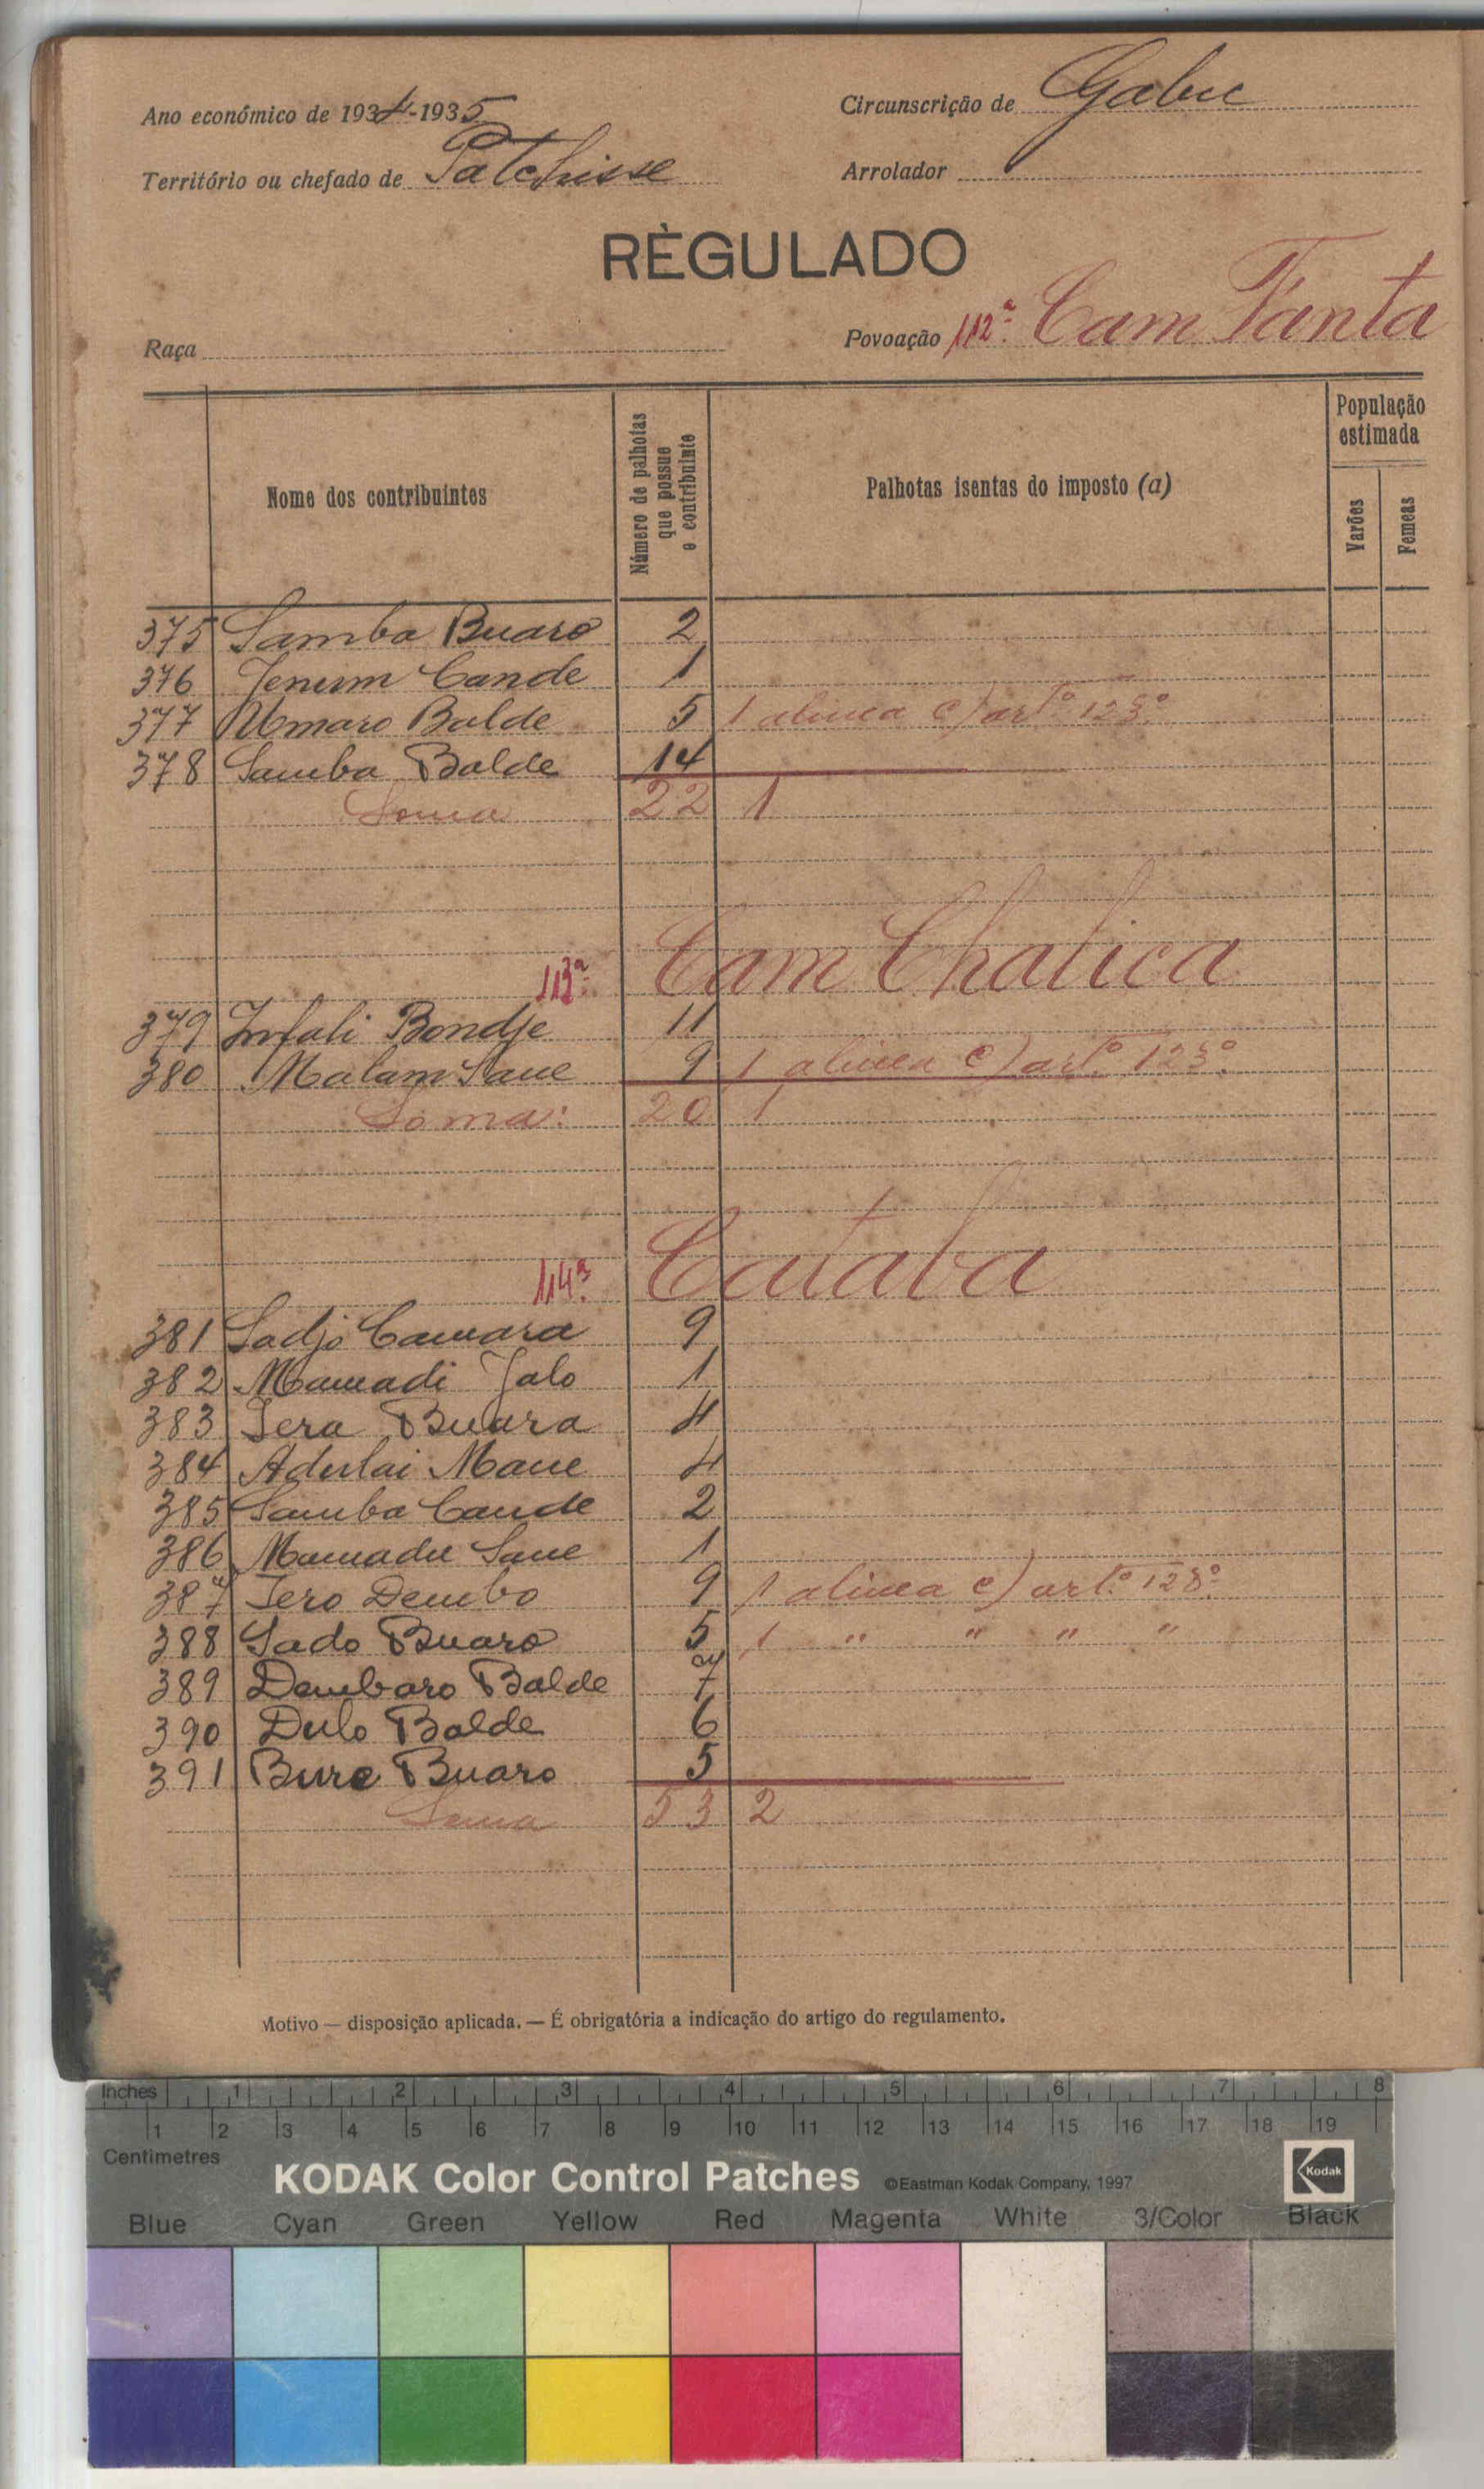 Ano económico de 1934-1935
Circunscrição de Gabu
Território ou chefado de Patchisse
Arrolador
RÈGULADO
Raça
Povoação 112ª Cam Fanta
Nome dos contribuintes
Número de palhotas que possue o contribuinte
Palhotas isentas do imposto (a)
População estimada
Varões
Femeas
375 Samba Buaro 2
376 Jenum Cande 1
377 Umaro Balde 5 1 alinea c) artº 123º
378 Samba Balde 14
Soma 22 1
113ª Cam Chalica
379 Infali Bondje 11
380 Malam Sane 9 1 alinea c) artº 123º
Soma: 20 1
114ª Cataba
381 Sadjo Camara 9
382 Mamadi Jalo 1
383 Sera Buara 4
384 Adulai Mane 4
385 Samba Cande 2
386 Mamadu Sane 1
387 Jero Dembo 9 1 alinea c) artº 123º
388 Sado Buaro 5 1 " " " "
389 Dembaro Balde 7
390 Dulo Balde 6
391 Bure Buaro 5
Soma 53 2
Motivo — disposição aplicada. — É obrigatória a indicação do artigo do regulamento.
Inches 1 2 3 4 5 6 7 8
1 2 3 4 5 6 7 8 9 10 11 12 13 14 15 16 17 18 19
Centimetres
KODAK Color Control Patches ©Eastman Kodak Company, 1997 Kodak
Blue Cyan Green Yellow Red Magenta White 3/Color Black